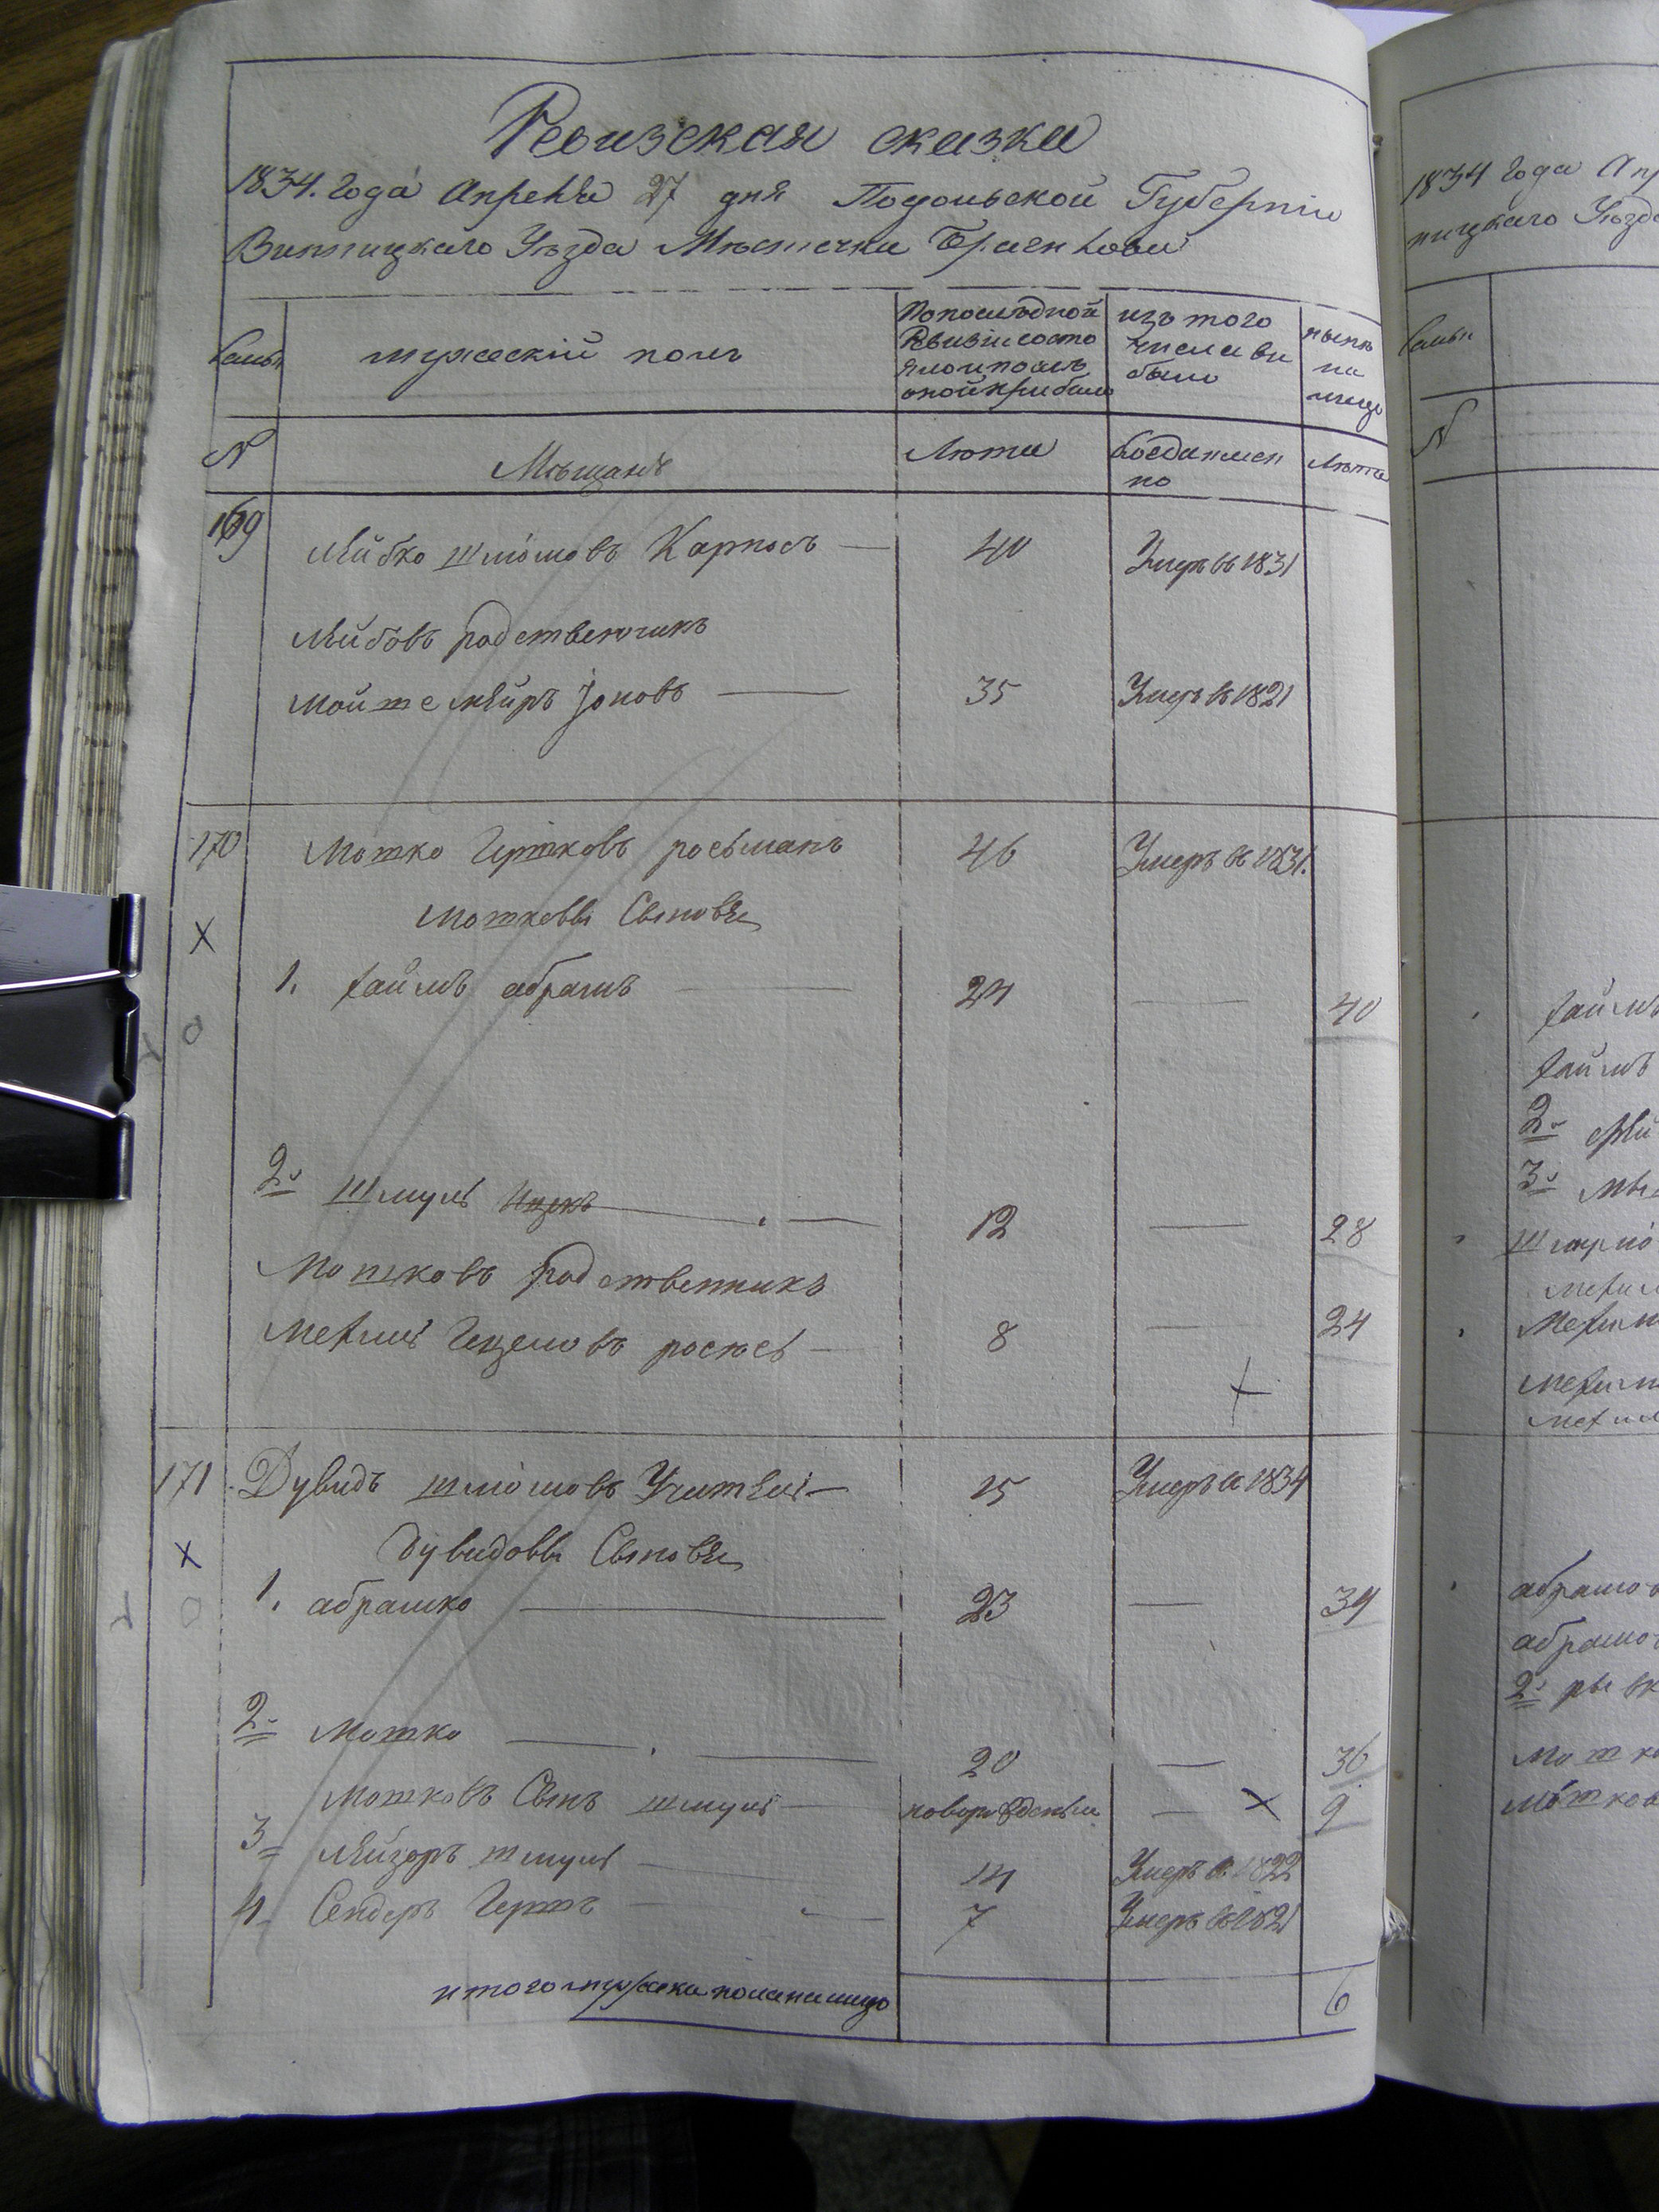 Ревизская сказка
1834. года Апреля 27 дня Подольской Губернии
Винницкаго Уезда Местечки Браилова
Семьи
мужескій полъ
По последной
Ревизіи состо
яло и после
оной прибыло
изъ того
числа вы
было
ныне
на
лицо
№
Мещанъ
Лета
Когда имен
но
Лета
169
Лейбко Шліомовъ Карпосъ —
40
Умеръ въ 1831
Лейбовъ родственикъ
Мойше Мейръ Іоновъ —
35
Умеръ въ 1821
170
Мошко Гершковъ росьманъ
46
Умеръ въ 1831.
Мошковы Сыновья
1. хаимъ абрамъ —
24
—
40
2. Шмуль Ицекъ —
12
—
28
Мошковъ Родственникъ
Мехель Гецеловъ —
8
—
24
171
Дувидъ Шліомовъ Учитель —
Умеръ въ 1834
Дувидовы Сыновья
1. абрамко —
23
—
34
2. Мошко —
20
—
36
Мошковъ Сынъ шмуль —
новорожденный
—
9
3. Лейзоръ шмуль —
14
Умеръ въ 1822
4. Сендеръ Гершъ —
7
Умеръ въ 1821
итого мужеска пола на лицо
6
1834 года Апр
ницкаго Уезда
Семьи
№
хаимъ
хаимъ
2.
3.
абрамо
абрамо
2.
Мошко
Мошков